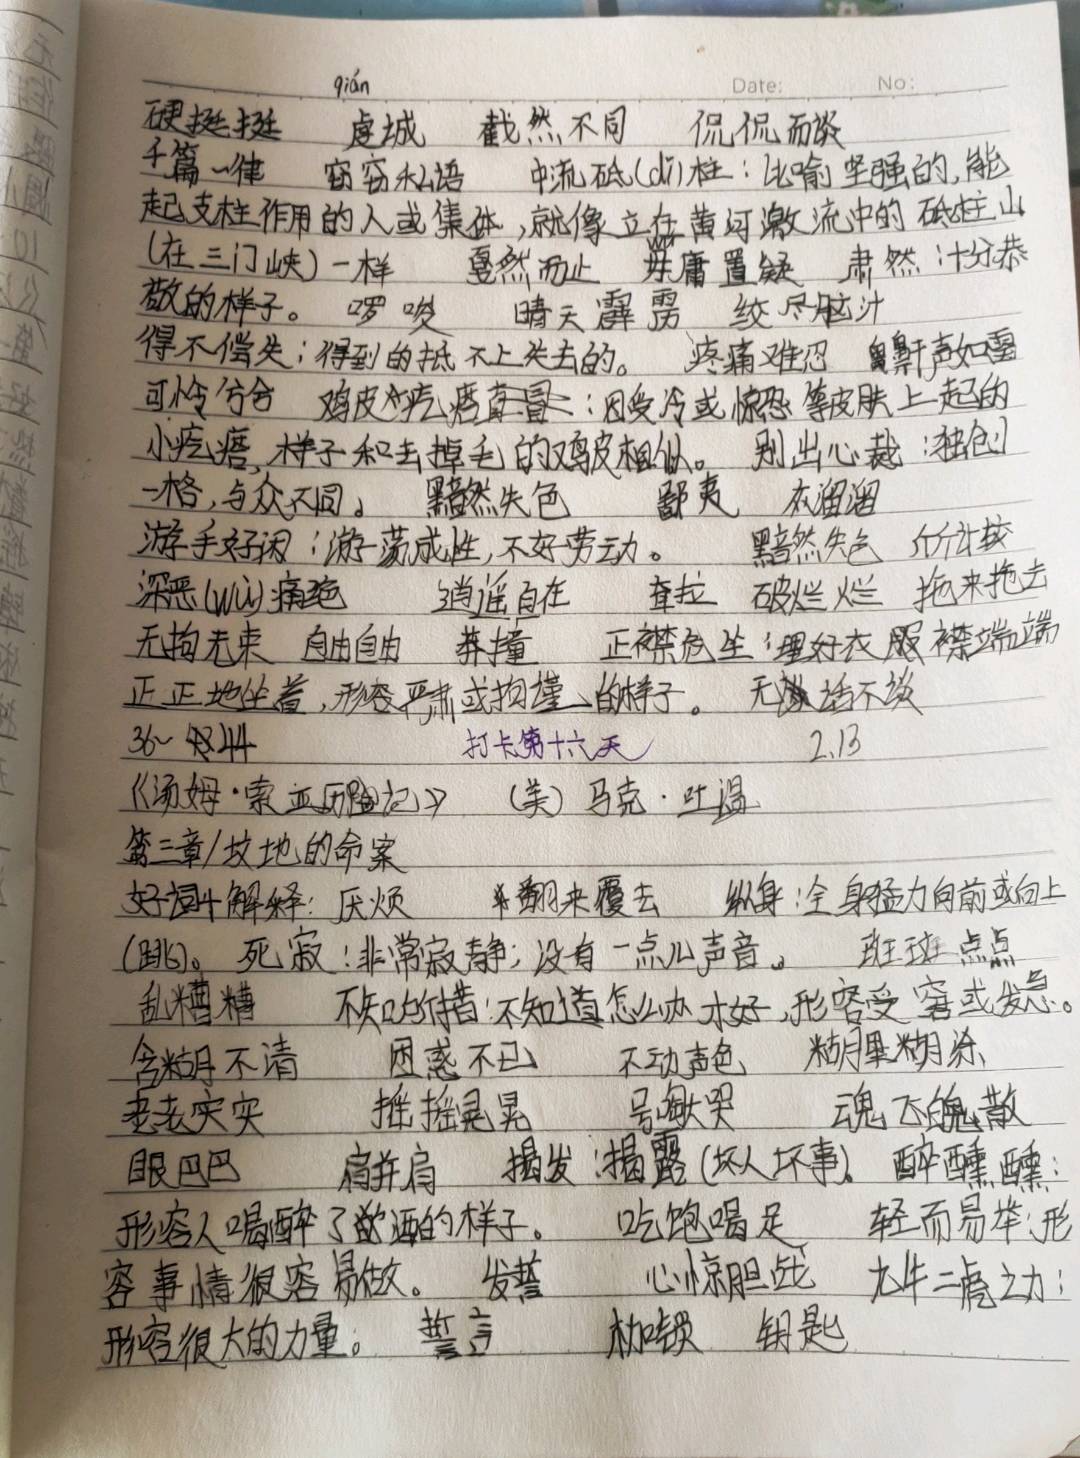 qián
Date:  No:
硬挺挺 虔城 截然不同 侃侃而谈
千篇一律 窃窃私语 中流砥(dǐ)柱：比喻坚强的,能
起支柱作用的人或集体,就像立在黄河激流中的砥柱山
(在三门峡)一样 戛然而止 毋庸置疑 肃然：十分恭
敬的样子。 啰唆 晴天霹雳 绞尽脑汁
得不偿失：得到的抵不上失去的。 疼痛难忍 鼾声如雷
可怜兮兮 鸡皮疙瘩直冒：因受冷或惊恐等皮肤上起的
小疙瘩,样子和去掉毛的鸡皮相似。 别出心裁：独创
一格,与众不同。 黯然失色 鄙夷 灰溜溜
游手好闲：游荡成性,不好劳动。 黯然失色 斤斤计较
深恶(wù)痛绝 逍遥自在 耷拉 破烂烂 拖来拖去
无拘无束 自由自由 莽撞 正襟危坐：理好衣服襟端端
正正地坐着,形容严肃或拘谨的样子。 无话不谈
36~44 打卡第十六天 2.13
《汤姆·索亚历险记》 (美)马克·吐温
第三章/坟地的命案
好词+解释：厌烦 翻来覆去 纵身：全身猛力向前或向上
(跳)。 死寂：非常寂静；没有一点儿声音。 斑斑点点
乱糟糟 不知所措：不知道怎么办才好,形容受窘或发急。
含糊不清 困惑不已 不动声色 糊里糊涂
老老实实 摇摇晃晃 号啕大哭 魂飞魄散
眼巴巴 肩并肩 揭发：揭露(坏人坏事)。 醉醺醺：
形容人喝醉了酒的样子。 吃饱喝足 轻而易举：形
容事情很容易做。 发誓 心惊胆战 九牛二虎之力：
形容很大的力量。 誓言 枷锁 钥匙